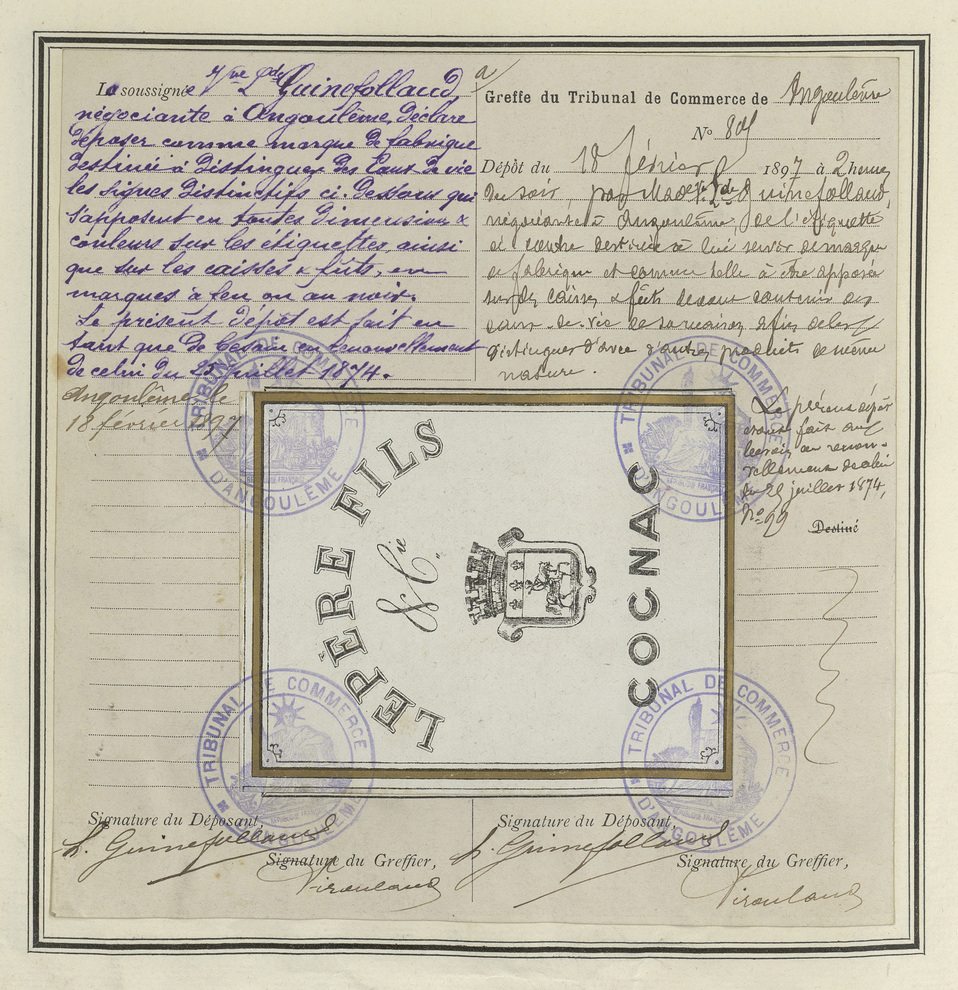 La soussignée Vve Ed. L. Guinefollaud
négociante à Angoulême, Déclare
déposer comme marque de fabrique
destinée à distinguer des Eaux de vie
les signes distinctifs ci-dessous qui
s'apposent en toutes dimensions &
couleurs sur les étiquettes, ainsi
que sur les caisses & fûts, en
marques à feu ou au noir.
Le présent dépôt est fait en
tant que de besoin en renouvellement
de celui du 25 juillet 1874.
Angoulême le
18 février 1897
Greffe du Tribunal de Commerce de Angoulême
No
Dépôt du 18 février 1897 à 2 heures
du soir, par Made Vve Guinefollaud,
négociante à Angoulême, de l'étiquette
ci contre destinée à lui servir de marque
de fabrique et comme telle à être apposée
sur des caisses & fûts devant contenir des
eaux-de-vie de sa maison afin de les
distinguer d'avec d'autres produits de même
nature.
Le présent dépôt
étant fait au
besoin en renou-
vellement de celui
du 25 juillet 1874,
No 99
Destiné
LEPÈRE FILS
& Cie
COGNAC
TRIBUNAL DE COMMERCE
D'ANGOULÊME
TRIBUNAL DE COMMERCE
D'ANGOULÊME
TRIBUNAL DE COMMERCE
D'ANGOULÊME
TRIBUNAL DE COMMERCE
D'ANGOULÊME
Signature du Déposant,
L. Guinefollaud
Signature du Greffier,
Signature du Déposant,
L. Guinefollaud
Signature du Greffier,